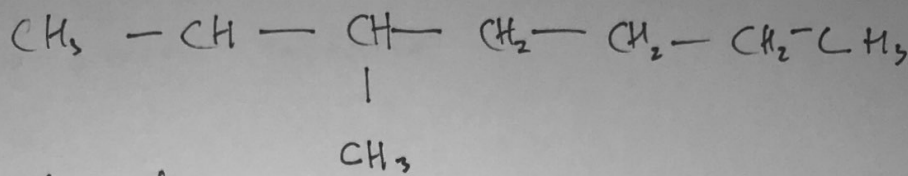 CH₃ — CH — CH — CH₂ — CH₂ — CH₂ - CH₃
|
CH₃